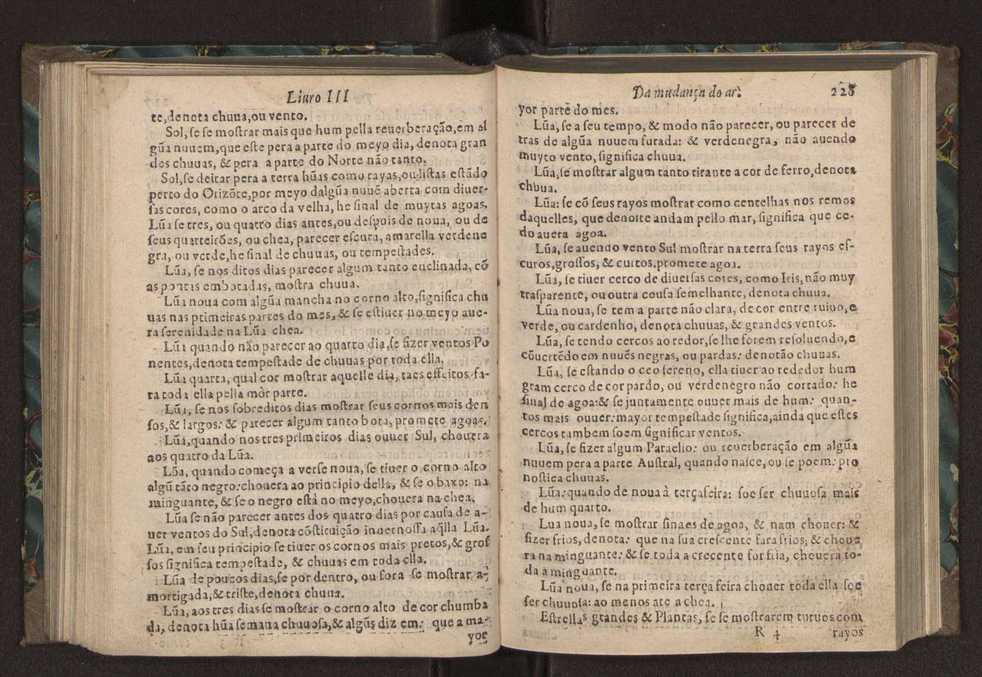 Liuro III
te, denota chuua, ou vento.
Sol, se se mostrar mais que hum pella reuerberação, em al
gũa nuuem, que este pera a parte do meyo dia, denota gran
des chuuas, & pera a parte do Norte não tanto.
Sol, se deitar pera a terra hũas como rayas, ou listas estãdo
perto do Orizõte, por meyo dalgũa nuuẽ aberta com diuer-
sas cores, como o arco da velha, he sinal de muytas agoas.
Lũa se tres, ou quatro dias antes, ou despois de noua, ou de
seus quarteirões, ou chea, parecer escura, amarella verdene
gra, ou verde, he sinal de chuuas, ou tempestades.
Lũa, se nos ditos dias parecer algum tanto enclinada, cõ
as pontas embotadas, mostra chuua.
Lũa noua com algũa mancha no corno alto, significa chu
uas nas primeiras partes do mes, & se estiuer no meyo aue-
ra serenidade na Lũa chea.
Lũa quando não parecer ao quarto dia, se fizer ventos Po
nentes, denota tempestade de chuuas por toda ella.
Lũa quarta, qual cor mostrar aquelle dia, taes effeitos fa-
ra toda ella pella mòr parte.
Lũa, se nos sobreditos dias mostrar seus cornos mais den
sos, & largos: & parecer algum tanto bota, promete agoas.
Lũa, quando nos tres primeiros dias ouuer Sul, chouera
aos quatro da Lũa.
Lũa, quando começa a verse noua, se tiuer o corno alto
algũ tãto negro: chouera ao principio della, & se o baxo: na
minguante, & se o negro està no meyo, chouera na chea.
Lũa se não parecer antes dos quatro dias por causa de a-
uer ventos do Sul, denota cõstituição inuernossa aq̃lla Lũa.
Lũa, em seu principio se tiuer os cornos mais pretos, & gros
sos significa tempestade, & chuuas em toda ella.
Lũa de poucos dias, se por dentro, ou fora se mostrar a-
mortigada, & triste, denota chuua.
Lũa, aos tres dias se mostrar o corno alto de cor chumba
da, denota hũa semana chuuosa, & algũs dizem: que a ma-
yor
Da mudança do ar. 228
yor parte do mes.
Lũa, se a seu tempo, & modo não parecer, ou parecer de
tras de algũa nuuem furada: & verdenegra, não auendo
muyto vento, significa chuua.
Lũa, se mostrar algum tanto tirante a cor de ferro, denota
chuua.
Lũa: se cõ seus rayos mostrar como centelhas nos remos
daquelles, que denoite andam pello mar, significa que ce-
do auera agoa.
Lũa, se auendo vento Sul mostrar na terra seus rayos es-
curos, grossos, & curtos, promete agoa.
Lũa, se tiuer cerco de diuersas cores, como Iris, não muy
trasparente, ou outra cousa semelhante, denota chuua.
Lũa noua, se tem a parte não clara, de cor entre ruiuo, e
verde, ou cardenho, denota chuuas, & grandes ventos.
Lũa, se tendo cercos ao redor, se lhe forem resoluendo, e
cõuertẽdo em nuuẽs negras, ou pardas: denotão chuuas.
Lũa, se estando o ceo sereno, ella tiuer ao rededor hum
gram cerco de cor pardo, ou verdenegro não cortado: he
sinal de agoa: & se juntamente ouuer mais de hum: quan-
tos mais ouuer: mayor tempestade significa, ainda que estes
cercos tambem soem significar ventos.
Lũa, se fizer algum Paraelio: ou reuerberação em algũa
nuuem pera a parte Austral, quando nasce, ou se poem: pro
nostica chuuas.
Lũa: quando de noua à terçafeira: soe ser chuuosa mais
de hum quarto.
Lua noua, se mostrar sinaes de agoa, & nam chouer: &
fizer frios, denota: que na sua crescente fara frios, & choue
ra na minguante: & se toda a crecente for fria, chouera to-
da a minguante.
Lũa noua, se na primeira terça feira chouer toda ella soe
ser chuuosa: ao menos ate a chea.
Estrellas grandes & Plantas, se se mostrarem turuos com
R 4 rayos